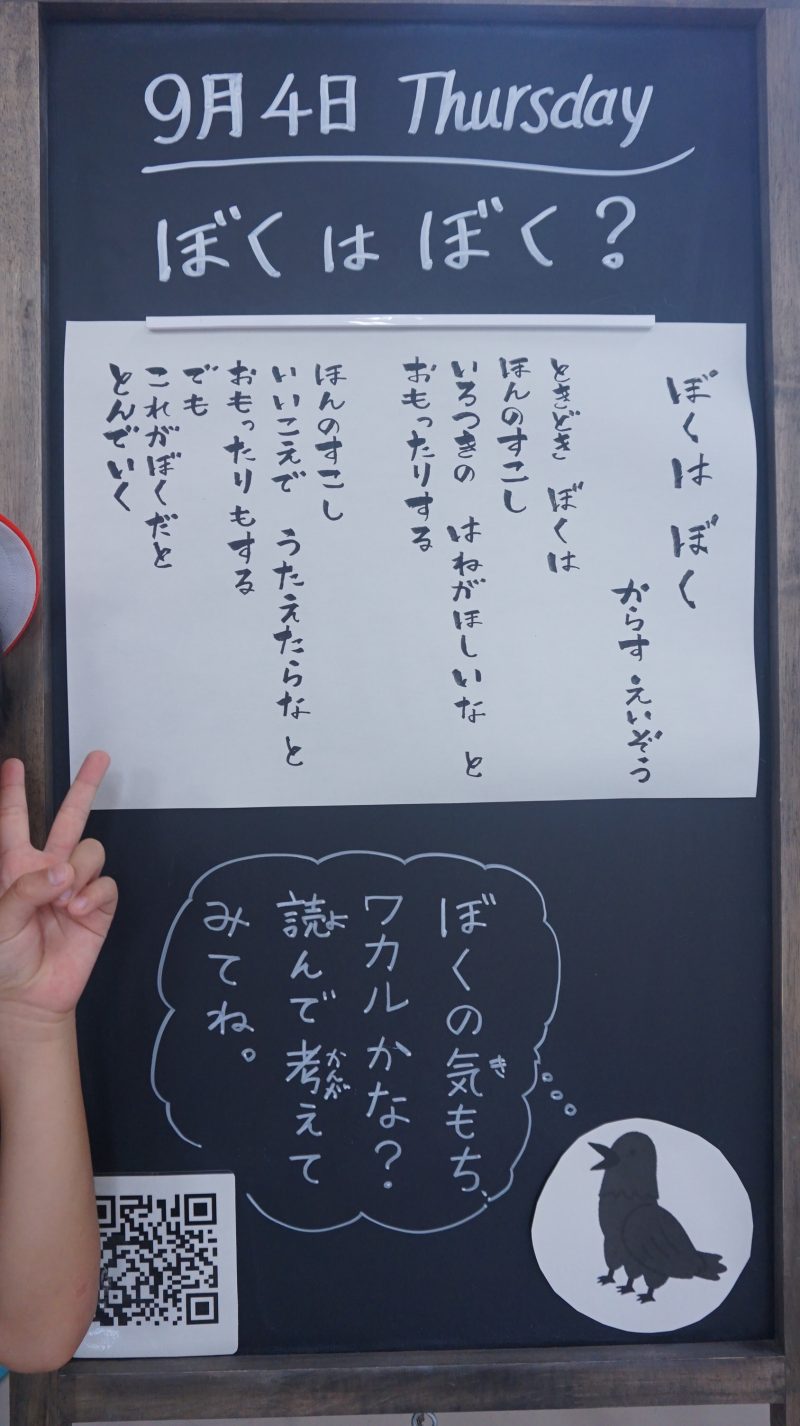 9月4日 Thursday
ぼくは ぼく?
ぼくは ぼく
からす えいぞう
ときどき ぼくは
ほんのすこし
いろつきの はねがほしいな と
おもったりする
ほんのすこし
いいこえで うたえたらな と
おもったりもする
でも
これがぼくだと
とんでいく
ぼくの気もち、
き
ワカルかな?
読んで考えて
よ
かんが
みてね。